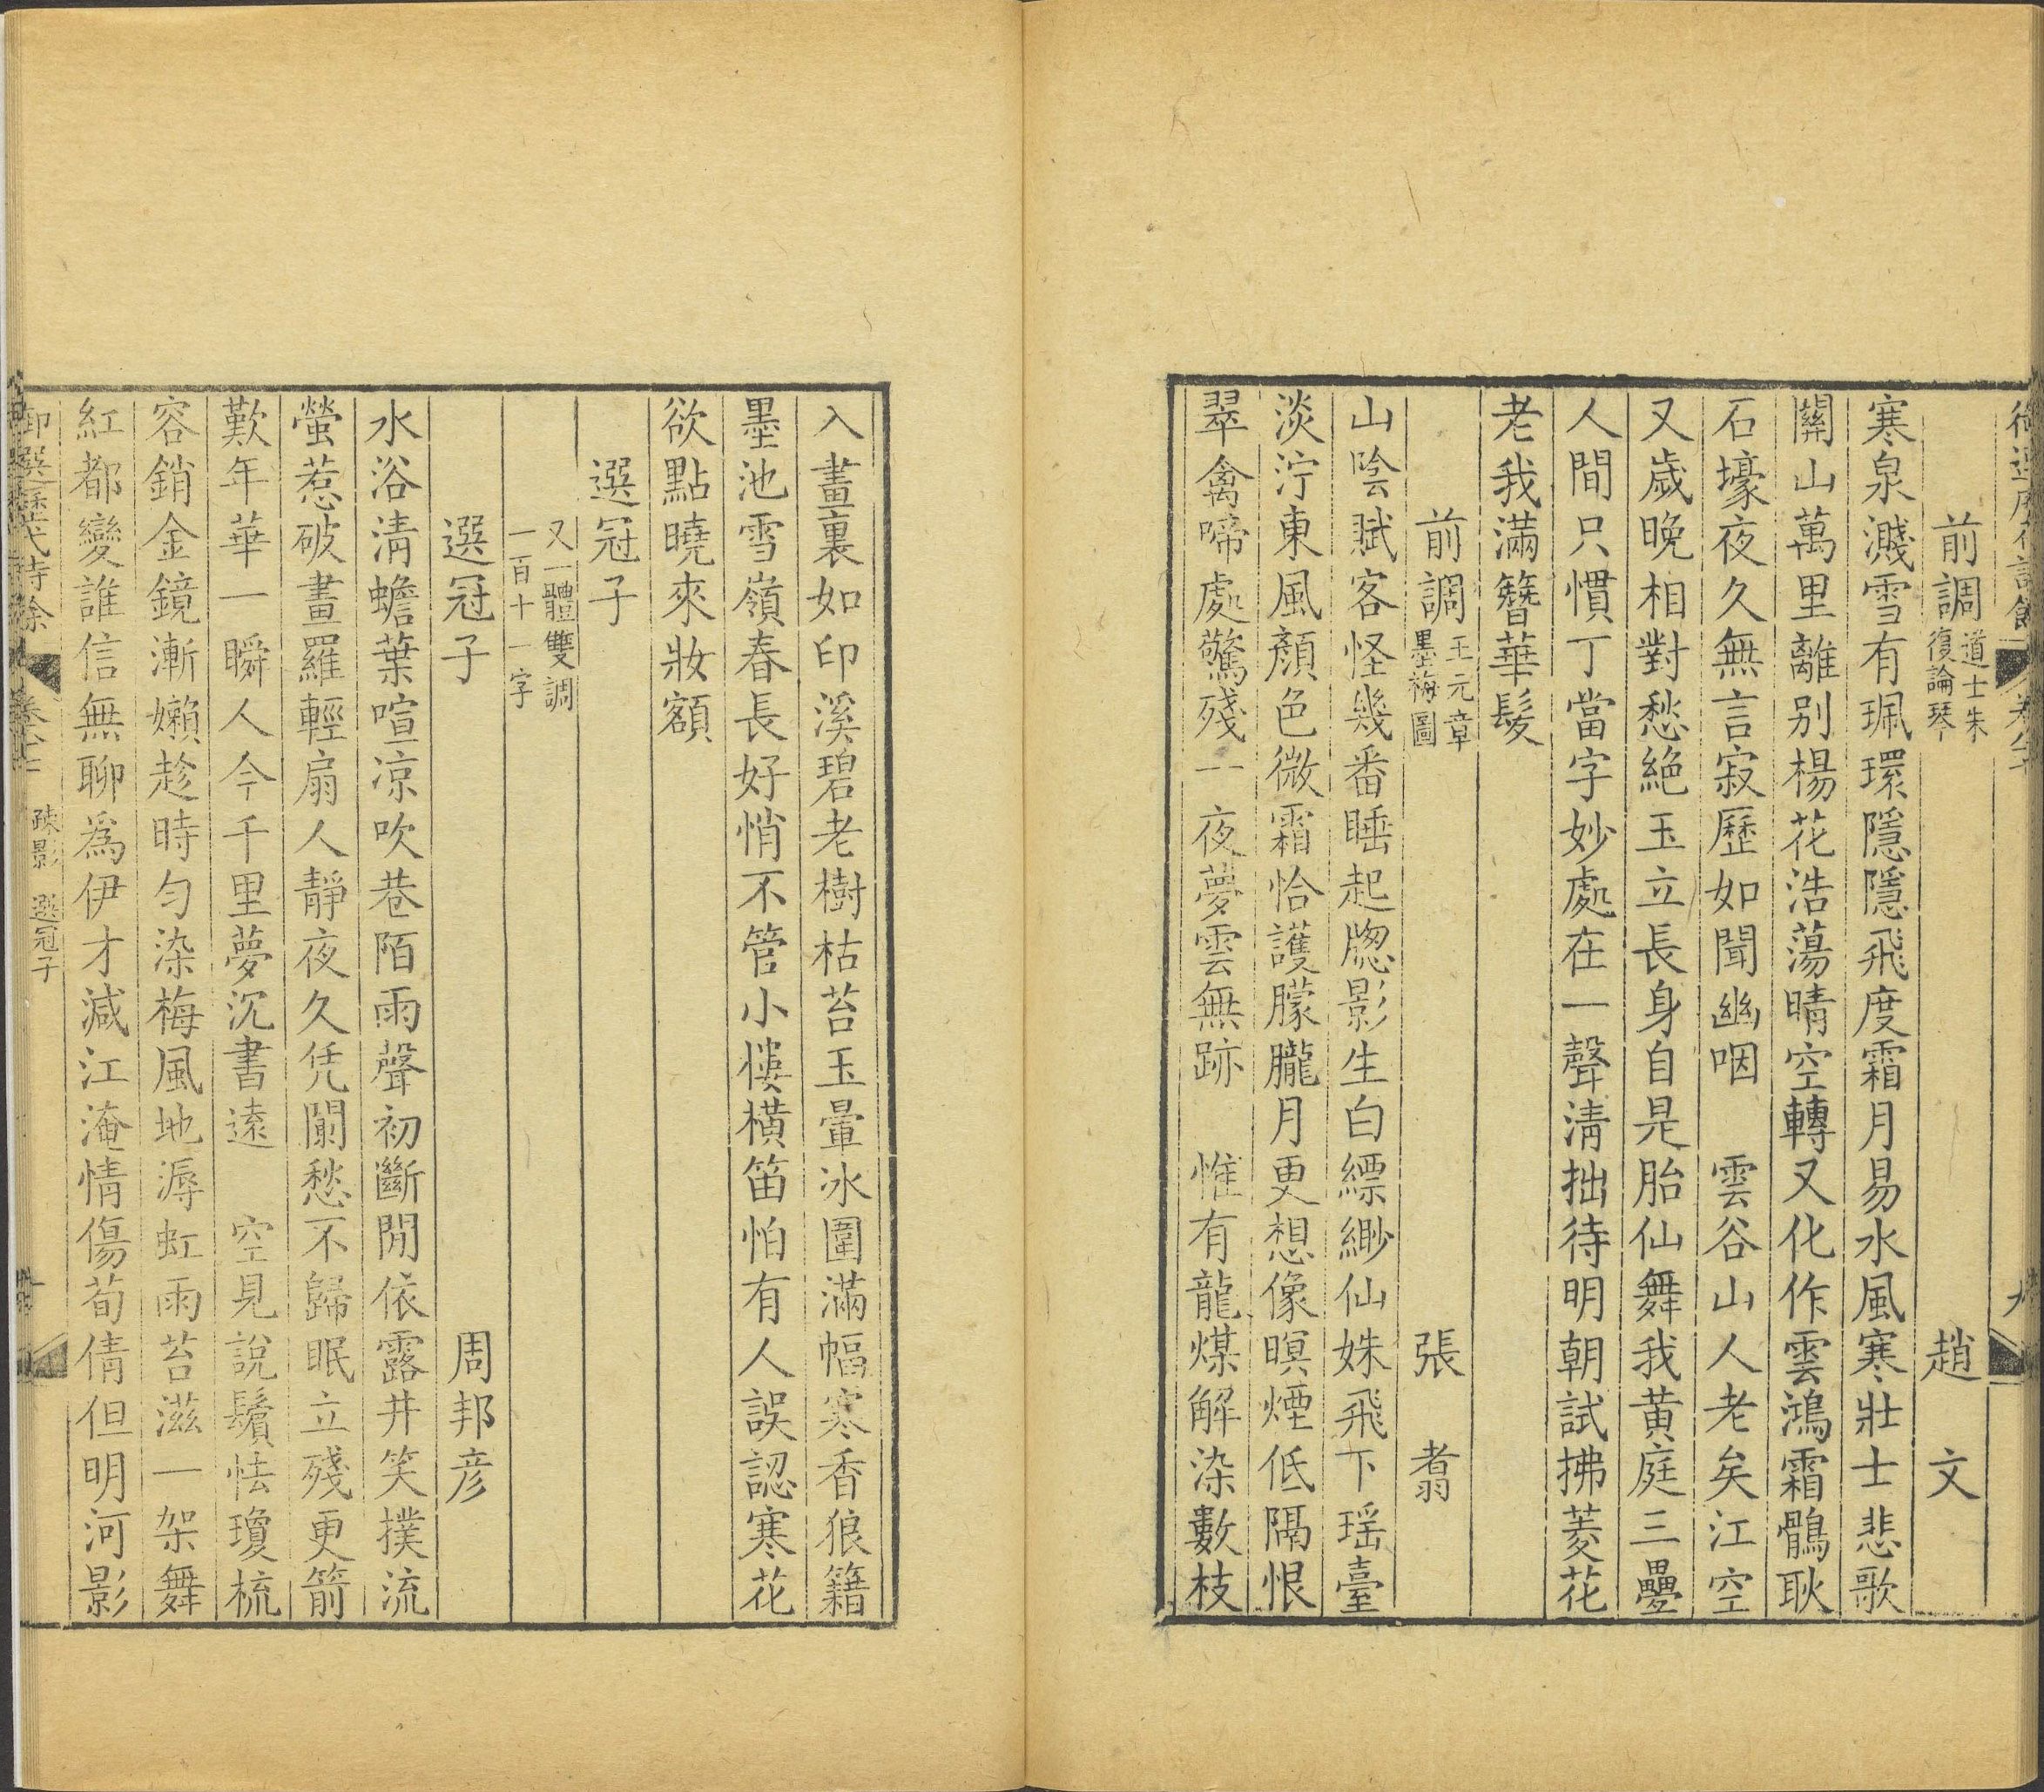 前調 道士朱復論琴 趙文
寒泉濺雪有珮環隱隱飛度霜月易水風寒壯士悲歌
關山萬里離别楊花浩蕩晴空轉又化作雲鴻霜鶻耿
石壕夜久無言寂歷如聞幽咽 雲谷山人老矣江空
又歲晚相對愁絶玉立長身自是胎仙舞我黄庭三疊
人間只慣丁當字妙處在一聲清拙待明朝試拂菱花
老我滿簪華髮
前調 王元章墨梅圖 張翥
山陰賦客怪幾番睡起牕影生白縹緲仙姝飛下瑶臺
淡泞東風顔色微霜恰護朦朧月更想像暝煙低隔恨
翠禽啼處驚殘一夜夢雲無跡 惟有龍煤解染數枝
入畫裏如印溪碧老樹枯苔玉暈冰圍滿幅寒香狼籍
墨池雪嶺春長好悄不管小樓横笛怕有人誤認寒花
欲點曉來妝額
選冠子
又一體雙調一百十一字
選冠子 周邦彦
水浴清蟾葉喧凉吹巷陌雨聲初斷閒依露井笑撲流
螢惹破畫羅輕扇人靜夜久凭闌愁不歸眠立殘更箭
歎年華一瞬人今千里夢沉書遠 空見説鬢怯瓊梳
容銷金鏡漸嬾趁時匀染梅風地溽虹雨苔滋一架舞
紅都變誰信無聊爲伊才減江淹情傷荀倩但明河影
疎影 選冠子